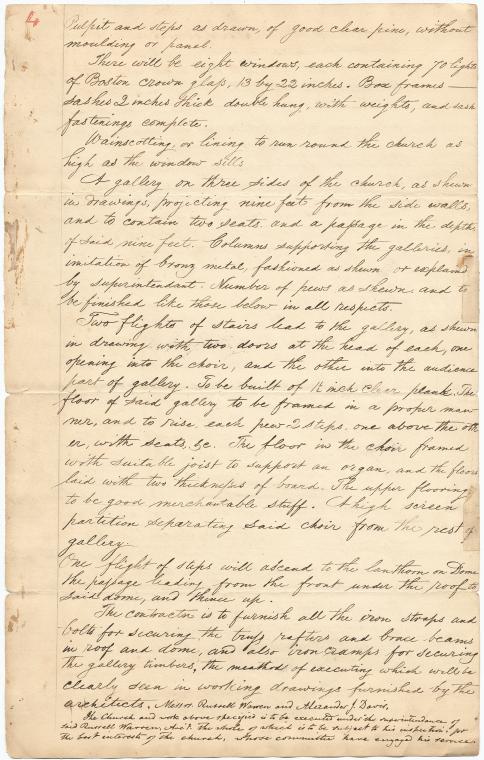 4
Pulpit and steps as drawn, of good clear pine, without
moulding or panel.
There will be eight windows, each containing 70 lights
of Boston crown glass, 13 by 22 inches. Box frames —
sashes 2 inches thick double hung, with weights, and sash
fastenings complete.
Wainscotting or lining to run round the church as
high as the window sills
A gallery on three sides of the church, as shewn
in drawings, projecting nine feet from the side walls,
and to contain two seats and a passage in the depth
of said nine feet. Columns supporting the galleries, in
imitation of bronz metal, fashioned as shewn or explained
by superintendant. Number of pews as shewn and to
be finished like those below in all respects.
Two flights of stairs lead to the gallery, as shewn
in drawing with two doors at the head of each, one
opening into the choir, and the other into the audience
part of gallery. To be built of 1½ inch clear plank. The
floor of said gallery to be framed in a proper man
ner, and to rise each pew 2 steps one above the oth
er, with seats, &c. The floor in the choir framed
with suitable joist to support an organ, and the floors
laid with two thicknesses of board. The upper flooring
to be good merchantable stuff. A high screen
partition separating said choir from the rest of
gallery.
One flight of steps will ascend to the lanthorn on Dome
the passage leading from the front under the roof to
said dome, and thence up.
The contractor is to furnish all the iron straps and
bolts for securing the truss rafters and brace beams
in roof and dome, and also iron cramps for securing
the gallery timbers, the meathods of executing which will be
clearly seen in working drawings furnished by the
architects. Messrs Russell Warren and Alexander J. Davis.
The Church and work above specified is to be executed under the superintendance of
said Russell Warren, Arct. The whole of which is to be subject to his inspection, for
the best interests of the church, whose committee have engaged his service.